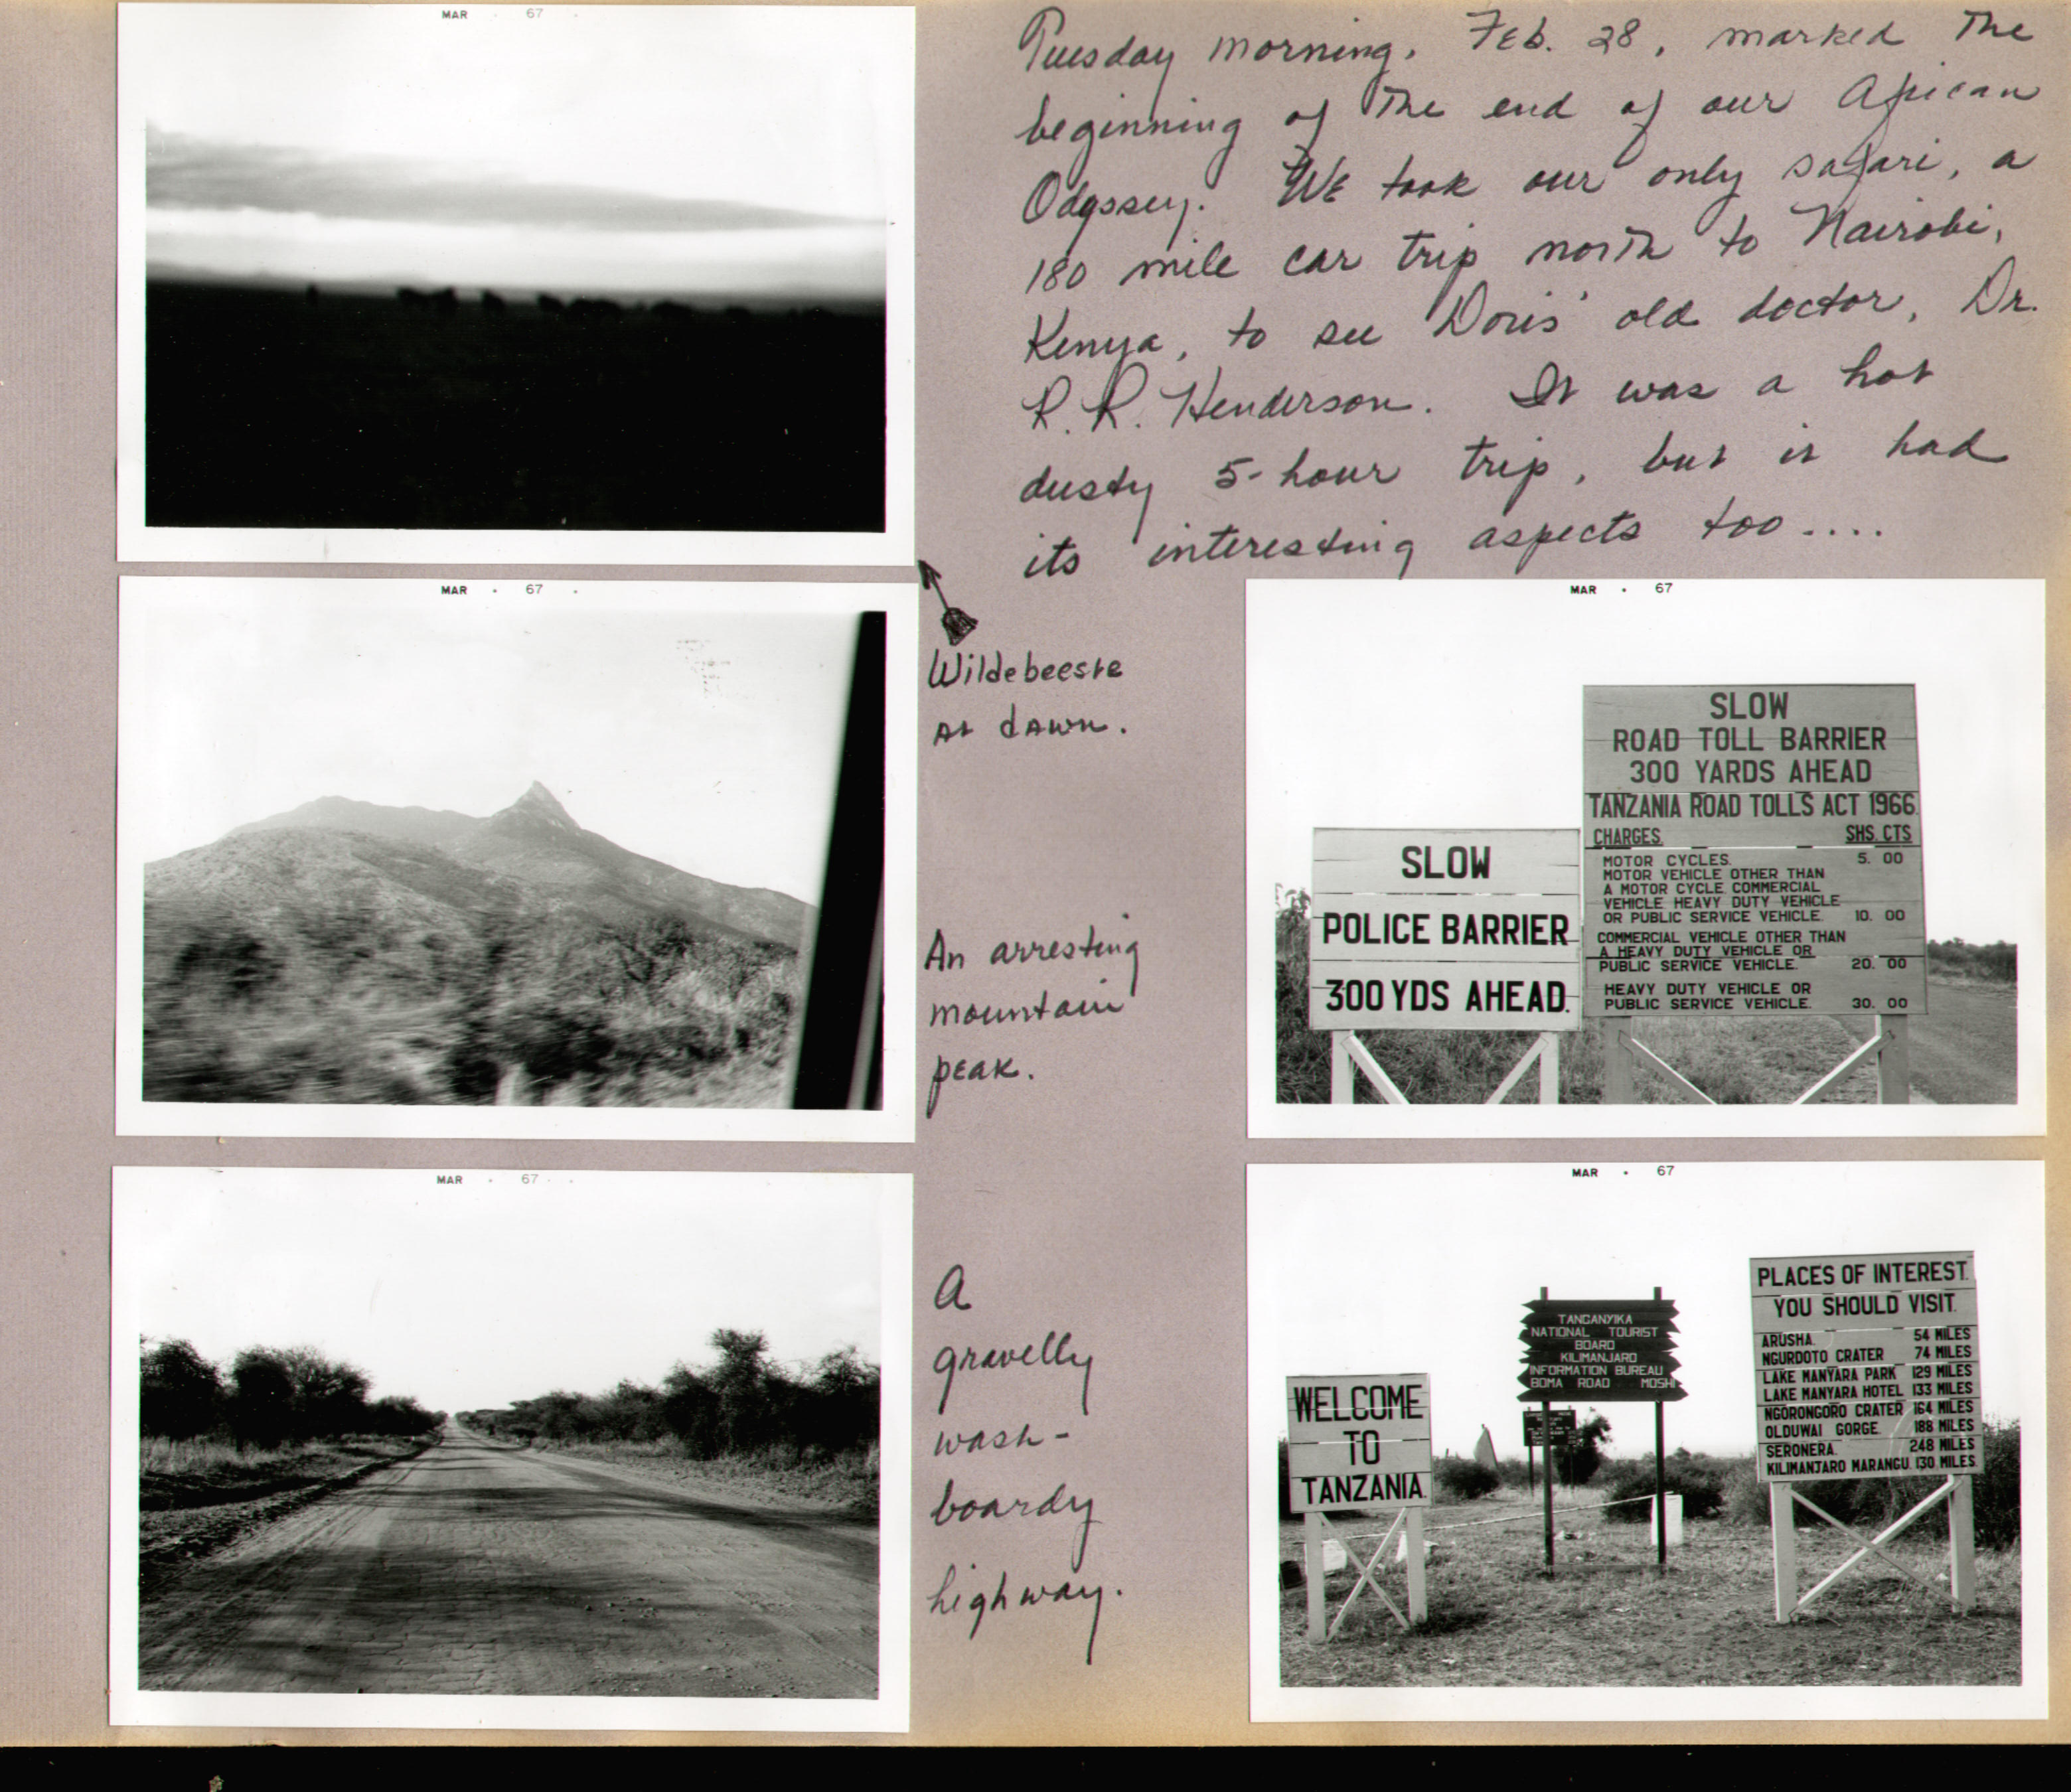 MAR 67
Tuesday morning, Feb. 28, marked the
beginning of the end of our African
Odyssey. We took our only safari, a
180 mile car trip north to Nairobi,
Kenya, to see Doris' old doctor, Dr.
R. R. Henderson. It was a hot
dusty 5-hour trip, but it had
its interesting aspects too....
Wildebeeste
at dawn.
MAR 67
An arresting
mountain
peak.
MAR 67
SLOW
POLICE BARRIER
300 YDS AHEAD.
SLOW
ROAD TOLL BARRIER
300 YARDS AHEAD
TANZANIA ROAD TOLLS ACT 1966.
CHARGES. SHS. CTS
MOTOR CYCLES. 5. 00
MOTOR VEHICLE OTHER THAN
A MOTOR CYCLE COMMERCIAL
VEHICLE HEAVY DUTY VEHICLE
OR PUBLIC SERVICE VEHICLE. 10. 00
COMMERCIAL VEHICLE OTHER THAN
A HEAVY DUTY VEHICLE OR
PUBLIC SERVICE VEHICLE. 20. 00
HEAVY DUTY VEHICLE OR
PUBLIC SERVICE VEHICLE. 30. 00
MAR 67
A
gravelly
wash-
boardy
highway.
MAR 67
WELCOME
TO
TANZANIA.
TANGANYIKA
NATIONAL TOURIST
BOARD
KILIMANJARO
INFORMATION BUREAU
BOMA ROAD MOSHI
PLACES OF INTEREST.
YOU SHOULD VISIT.
ARUSHA. 54 MILES
NGURDOTO CRATER 74 MILES
LAKE MANYARA PARK 129 MILES
LAKE MANYARA HOTEL 133 MILES
NGORONGORO CRATER 164 MILES
OLDUWAI GORGE. 188 MILES
SERONERA. 248 MILES
KILIMANJARO MARANGU. 130 MILES.